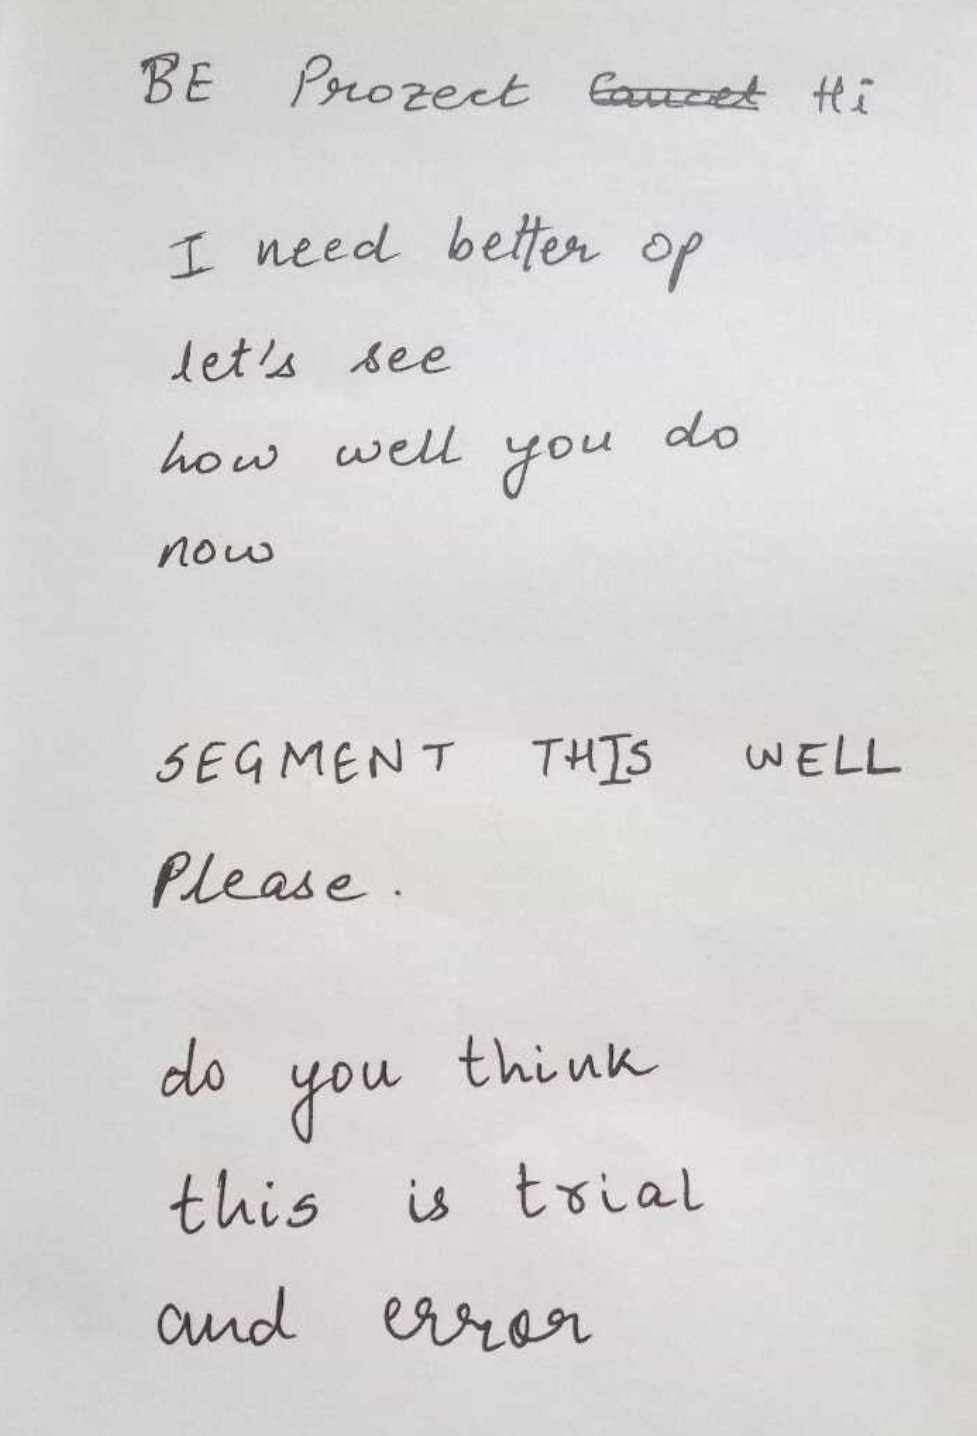 BE Prozect Hi
I need better op
let's see
how well you do
now
SEGMENT THIS WELL
Please.
do you think
this is trial
and error